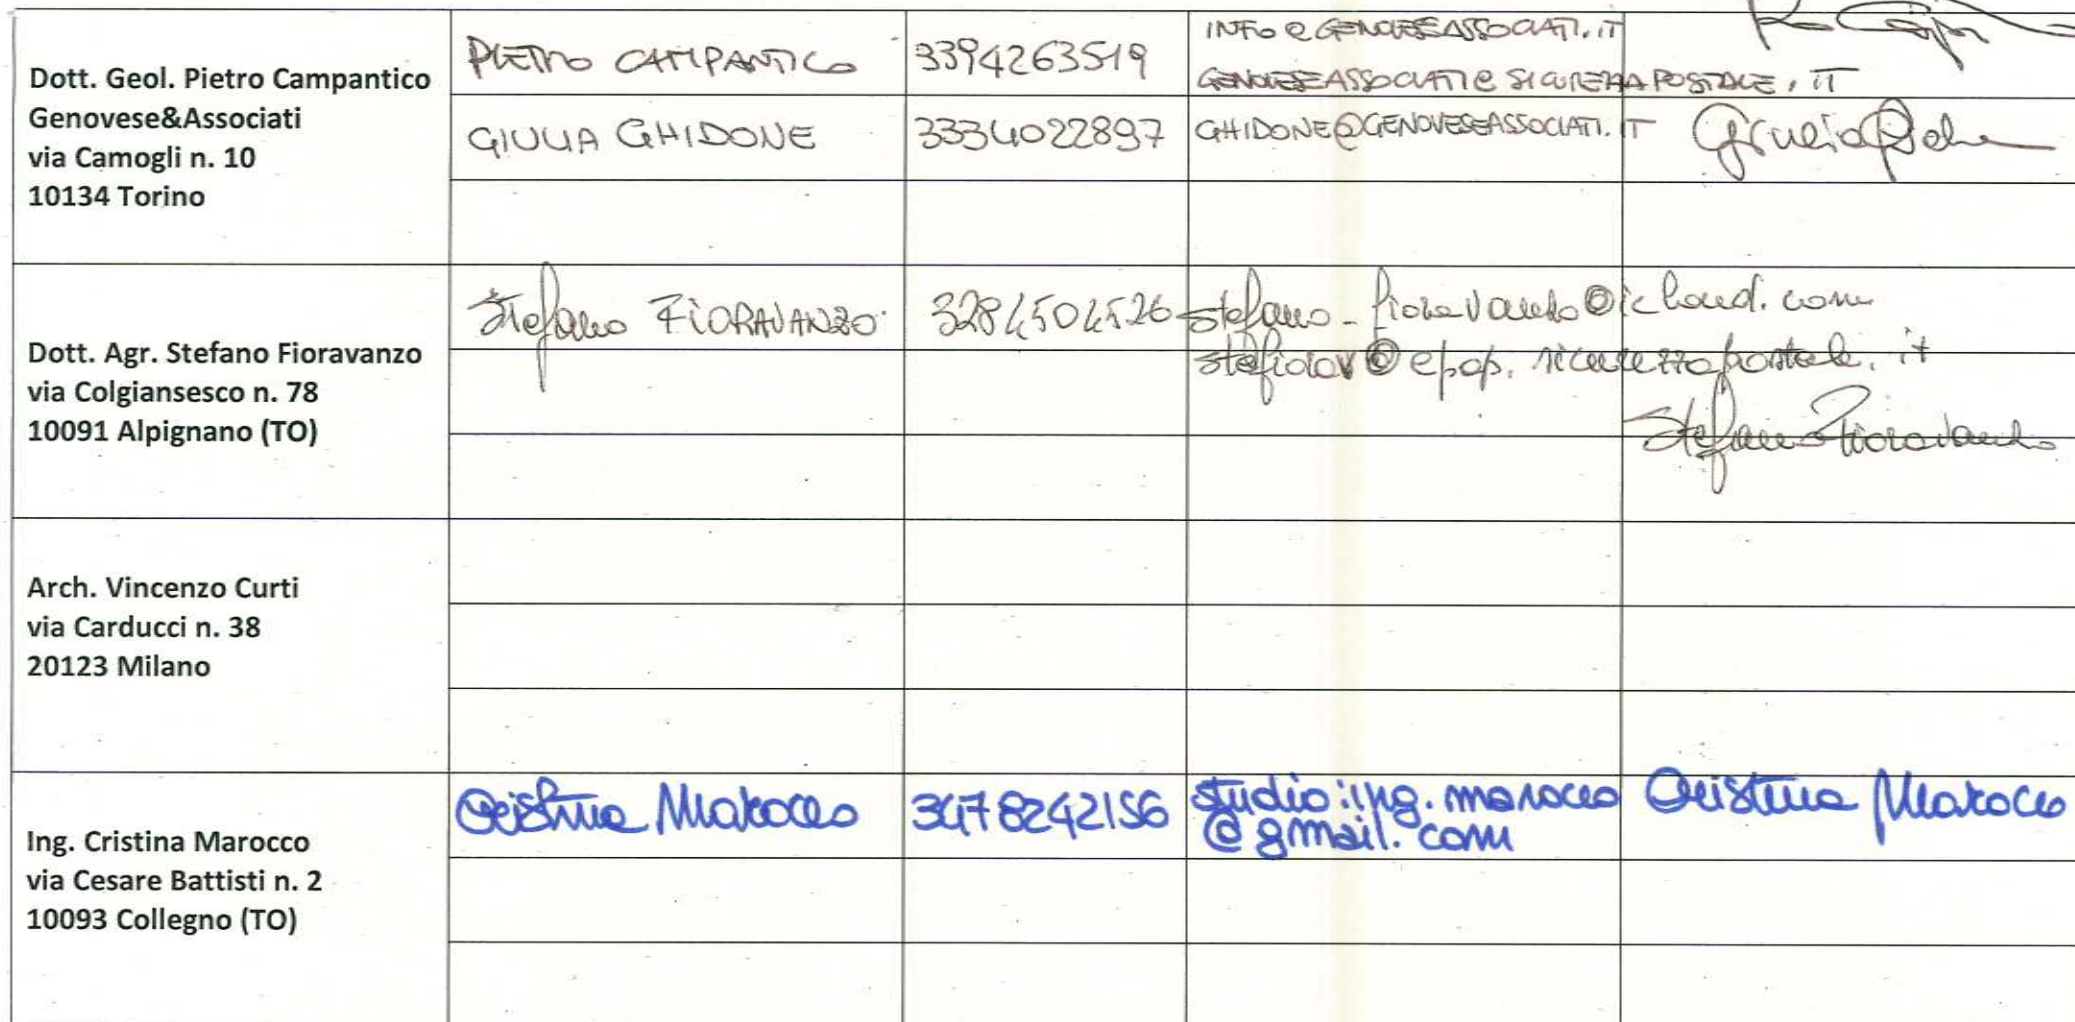 Dott. Geol. Pietro Campantico
Genovese&Associati
via Camogli n. 10
10134 Torino
PIETRO CAMPANTICO
3394263519
INFO@GENOVESEASSOCIATI.IT
GENOVESEASSOCIATI@SICUREZZAPOSTALE.IT
GIULIA GHIDONE
3334022897
GHIDONE@GENOVESEASSOCIATI.IT
Dott. Agr. Stefano Fioravanzo
via Colgiansesco n. 78
10091 Alpignano (TO)
Stefano FIORAVANZO
3284504526
stefano_fioravanzo@icloud.com
stefiorav@epap.sicurezzapostale.it
Stefano Fioravanzo
Arch. Vincenzo Curti
via Carducci n. 38
20123 Milano
Ing. Cristina Marocco
via Cesare Battisti n. 2
10093 Collegno (TO)
Cristina Marocco
3478242156
studio.ing.marocco
@gmail.com
Cristina Marocco